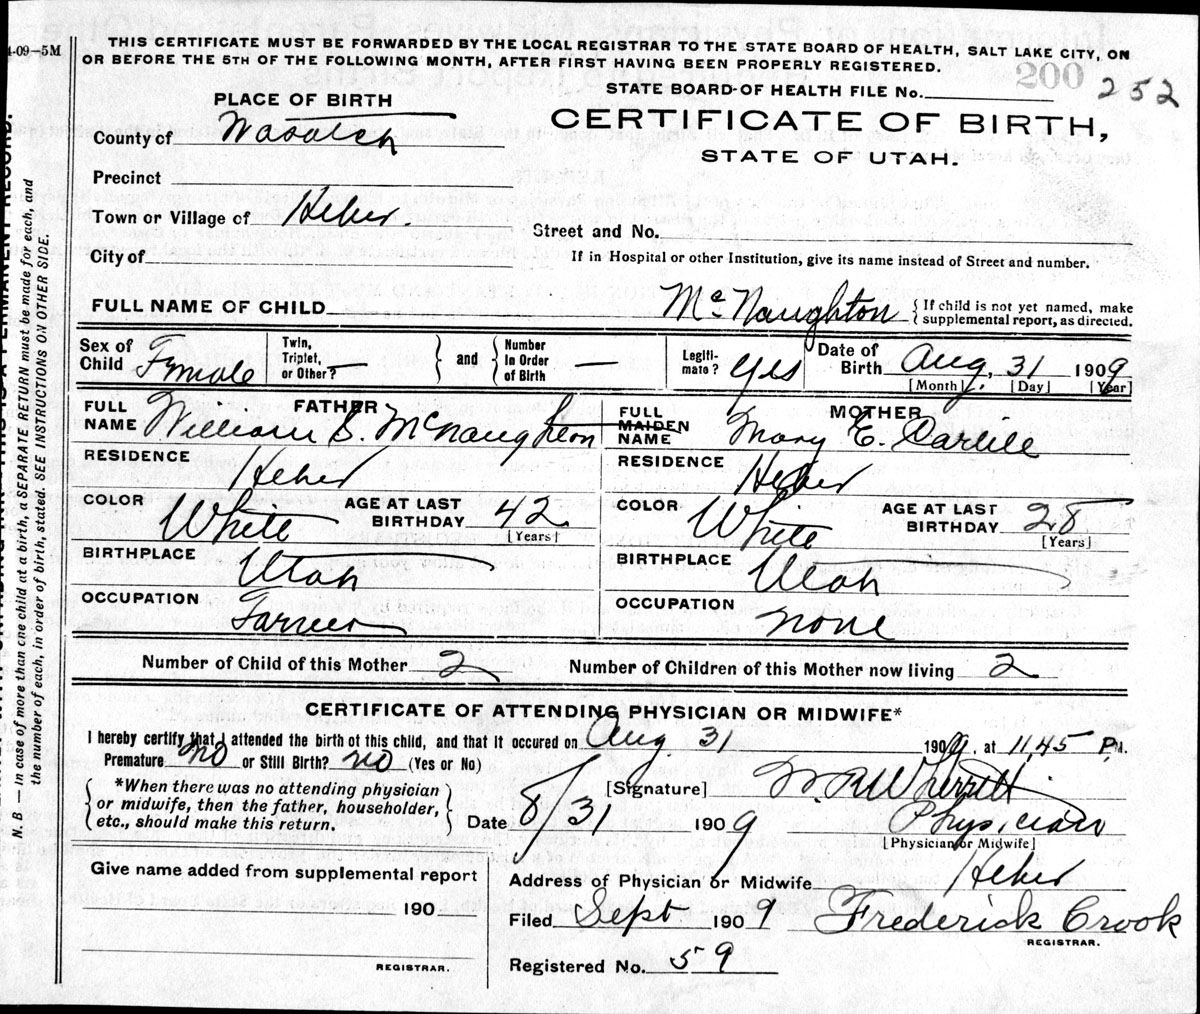 4-09-5M
THIS CERTIFICATE MUST BE FORWARDED BY THE LOCAL REGISTRAR TO THE STATE BOARD OF HEALTH, SALT LAKE CITY, ON
OR BEFORE THE 5TH OF THE FOLLOWING MONTH, AFTER FIRST HAVING BEEN PROPERLY REGISTERED.
200
STATE BOARD OF HEALTH FILE No. 252
PLACE OF BIRTH
CERTIFICATE OF BIRTH,
STATE OF UTAH.
County of Wasatch
Precinct
Town or Village of Heber.
Street and No.
City of
If in Hospital or other Institution, give its name instead of Street and number.
FULL NAME OF CHILD McNaughton { If child is not yet named, make
supplemental report, as directed.
Sex of Child Female
Twin, Triplet, or Other? —
and
Number In Order of Birth —
Legiti-mate? yes
Date of Birth Aug. 31 1909
[Month] [Day] [Year]
FATHER
FULL NAME William S. McNaughton
MOTHER
FULL MAIDEN NAME Mary E. Carlile
RESIDENCE Heber
RESIDENCE Heber
COLOR White AGE AT LAST BIRTHDAY 42 [Years]
COLOR White AGE AT LAST BIRTHDAY 28 [Years]
BIRTHPLACE Utah
BIRTHPLACE Utah
OCCUPATION Farmer
OCCUPATION none
Number of Child of this Mother 2 Number of Children of this Mother now living 2
CERTIFICATE OF ATTENDING PHYSICIAN OR MIDWIFE*
I hereby certify that I attended the birth of this child, and that it occured on Aug. 31 1909, at 11,45 P.M.
Premature no or Still Birth? no (Yes or No)
*When there was no attending physician
or midwife, then the father, householder,
etc., should make this return.
[Signature] Wherritt
Date 8/31 1909 Physician
[Physician or Midwife]
Give name added from supplemental report
190
REGISTRAR.
Address of Physician or Midwife Heber
Filed Sept 1909 Frederick Crook
REGISTRAR.
Registered No. 59
N. B. — In case of more than one child at a birth, a SEPARATE RETURN must be made for each, and
the number of each, in order of birth, stated. SEE INSTRUCTIONS ON OTHER SIDE.